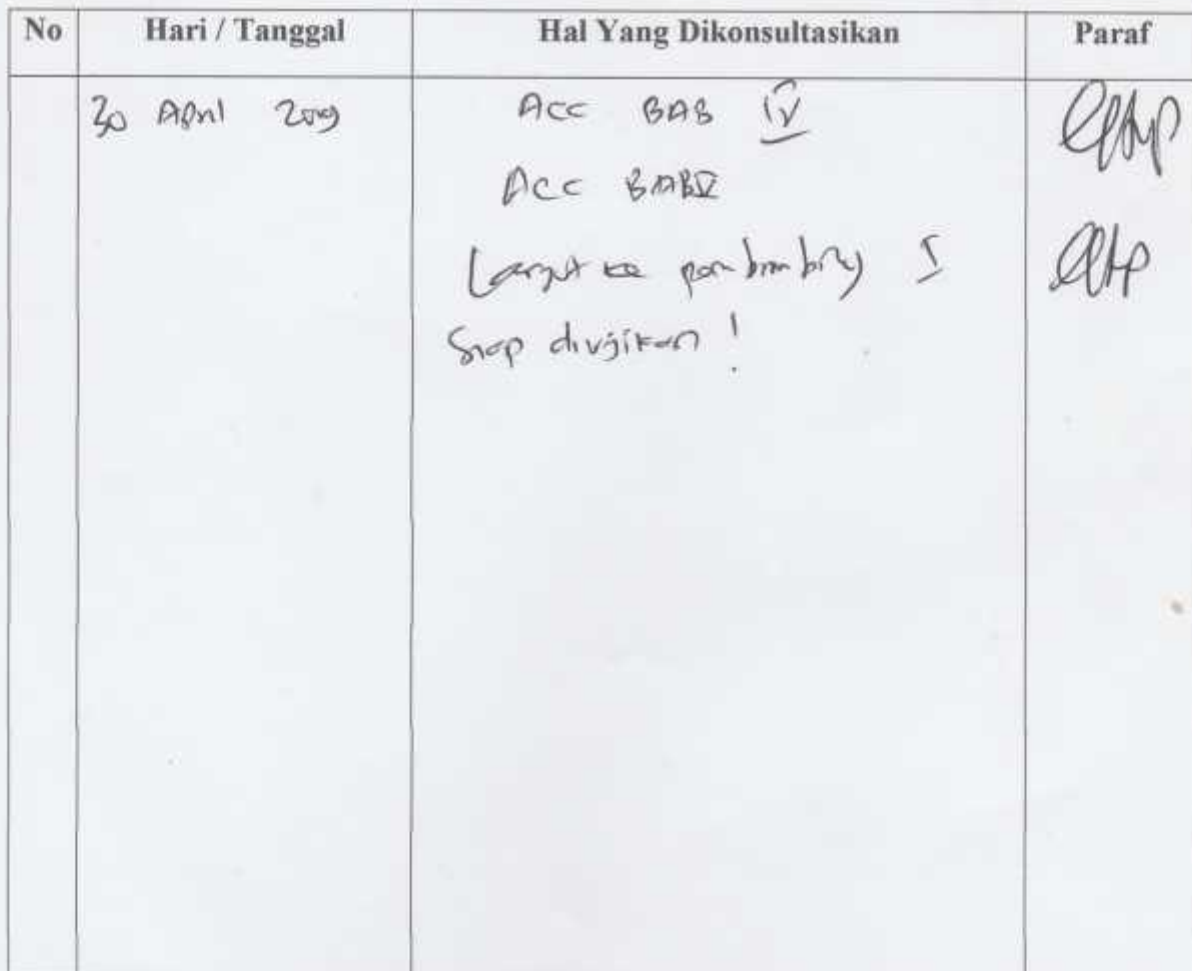 No Hari / Tanggal Hal Yang Dikonsultasikan Paraf
30 April 2019 Acc BAB IV
Acc BAB V
Lanjut ke pembimbing I
Siap diujikan !